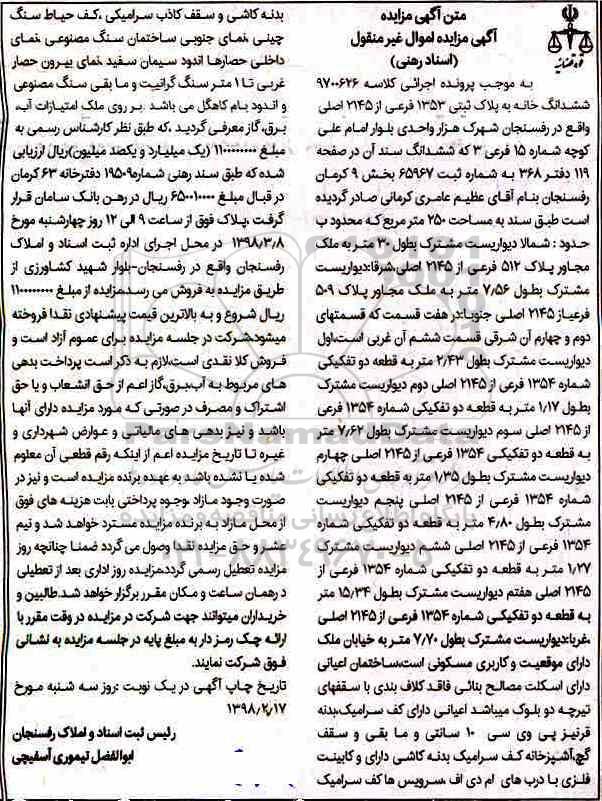 متن آگهی مزایده
آگهی مزایده اموال غیر منقول
(اسناد رهنی)
به موجب پرونده اجرائی کلاسه ۹۷۰۰۶۲۶
ششدانگ خانه به پلاک ثبتی ۱۳۵۳ فرعی از ۲۱۴۵ اصلی
واقع در رفسنجان شهرک هزار واحدی بلوار امام علی
کوچه شماره ۱۵ فرعی ۳ که ششدانگ سند آن در صفحه
۱۱۹ دفتر ۳۶۸ به شماره ثبت ۶۵۹۶۷ بخش ۹ کرمان
رفسنجان بنام آقای عظیم عامری کرمانی صادر گردیده
است طبق سند به مساحت ۲۵۰ متر مربع که محدود ب
حدود : شمالا دیواریست مشترک بطول ۳۰ متر به ملک
مجاور پلاک ۵۱۲ فرعی از ۲۱۴۵ اصلی،شرقا:دیواریست
مشترک بطول ۷/۵۶ متر به ملک مجاور پلاک ۵۰۹
فرعیاز ۲۱۴۵ اصلی جنوبا:در هفت قسمت که قسمتهای
دوم و چهارم آن شرقی قسمت ششم آن غربی است،اول
دیواریست مشترک بطول ۲/۴۳ متر به قطعه دو تفکیکی
شماره ۱۳۵۴ فرعی از ۲۱۴۵ اصلی دوم دیواریست مشترک
بطول ۱/۱۷ متر به قطعه دو تفکیکی شماره ۱۳۵۴ فرعی
از ۲۱۴۵ اصلی سوم دیواریست مشترک بطول ۷/۶۲ متر
به قطعه دو تفکیکی ۱۳۵۴ فرعی از ۲۱۴۵ اصلی چهارم
دیواریست مشترک بطول ۱/۳۵ متر به قطعه دو تفکیکی
شماره ۱۳۵۴ فرعی از ۲۱۴۵ اصلی پنجم دیواریست
مشترک بطول ۴/۸۰ متر به قطعه دو تفکیکی شماره
۱۳۵۴ فرعی از ۲۱۴۵ اصلی ششم دیواریست مشترک
۱/۲۷ متر به قطعه دو تفکیکی شماره ۱۳۵۴ فرعی از
۲۱۴۵ اصلی هفتم دیواریست مشترک بطول ۱۵/۳۴ متر
به قطعه دو تفکیکی شماره ۱۳۵۴ فرعی از ۲۱۴۵ اصلی
،غربا:دیواریست مشترک بطول ۷/۷۰ متر به خیابان ملک
دارای موقعیت و کاربری مسکونی است،ساختمان اعیانی
دارای اسکلت مصالح بنائی فاقد کلاف بندی با سقفهای
تیرچه دو بلوک میباشد اعیانی دارای کف سرامیک،بدنه
قرنیز پی وی سی ۱۰ سانتی و ما بقی و سقف
گچ،آشپزخانه کف سرامیک بدنه کاشی دارای و کابینت
فلزی با درب های ام دی اف ،سرویس ها کف سرامیک
بدنه کاشی و سقف کاذب سرامیکی ،کف حیاط سنگ
چینی ،نمای جنوبی ساختمان سنگ مصنوعی ،نمای
داخلی حصارها اندود سیمان سفید ،نمای بیرون حصار
غربی تا ۱ متر سنگ گرانیت و ما بقی سنگ مصنوعی
و اندود بام کاهگل می باشد .بر روی ملک امتیازات آب،
برق،گاز معرفی گردید ،که طبق نظر کارشناس رسمی به
مبلغ ۱۱۰۰۰۰۰۰۰۰ (یک میلیارد و یکصد میلیون)ریال ارزیابی
شده که طبق سند رهنی شماره۱۹۵۰۹ دفترخانه ۶۳ کرمان
در قبال مبلغ ۶۵۰۰۱۰۰۰۰ ریال در رهن بانک سامان قرار
گرفت ،پلاک فوق از ساعت ۹ الی ۱۲ روز چهارشنبه مورخ
۱۳۹۸/۳/۸ در محل اجرای اداره ثبت اسناد و املاک
رفسنجان واقع در رفسنجان-بلوار شهید کشاورزی از
طریق مزایده به فروش می رسد،مزایده از مبلغ ۱۱۰۰۰۰۰۰۰۰
ریال شروع و به بالاترین قیمت پیشنهادی نقدا فروخته
میشود.شرکت در جلسه مزایده برای عموم آزاد است و
فروش کلا نقدی است،لازم به ذکر است پرداخت بدهی
های مربوط به آب،برق،گاز اعم از حق انشعاب و یا حق
اشتراک و مصرف در صورتی که مورد مزایده دارای آنها
باشد و نیز بدهی های مالیاتی و عوارض شهرداری و
غیره تا تاریخ مزایده اعم از اینکه رقم قطعی آن معلوم
شده یا نشده باشد به عهده برنده مزایده است و نیز در
صورت وجود مازاد ،وجوه پرداختی بابت هزینه های فوق
از محل مازاد به برنده مزایده مسترد خواهد شد و نیم
عشر و حق مزایده نقدا وصول می گردد ضمنا چنانچه روز
مزایده تعطیل رسمی گردد،مزایده روز اداری بعد از تعطیلی
د رهمان ساعت و مکان مقرر برگزار خواهد شد.طالبین و
خریداران میتوانند جهت شرکت در مزایده در وقت مقرر با
ارائه چک رمز دار به مبلغ پایه در جلسه مزایده به نشانی
فوق شرکت نمایند.
تاریخ چاپ آگهی در یک نوبت :روز سه شنبه مورخ
۱۳۹۸/۲/۱۷
رئیس ثبت اسناد و املاک رفسنجان
ابوالفضل تیموری آسفیچی
ParsNamadData
پایگاه اطلاع رسانی مناقصه و مزایده